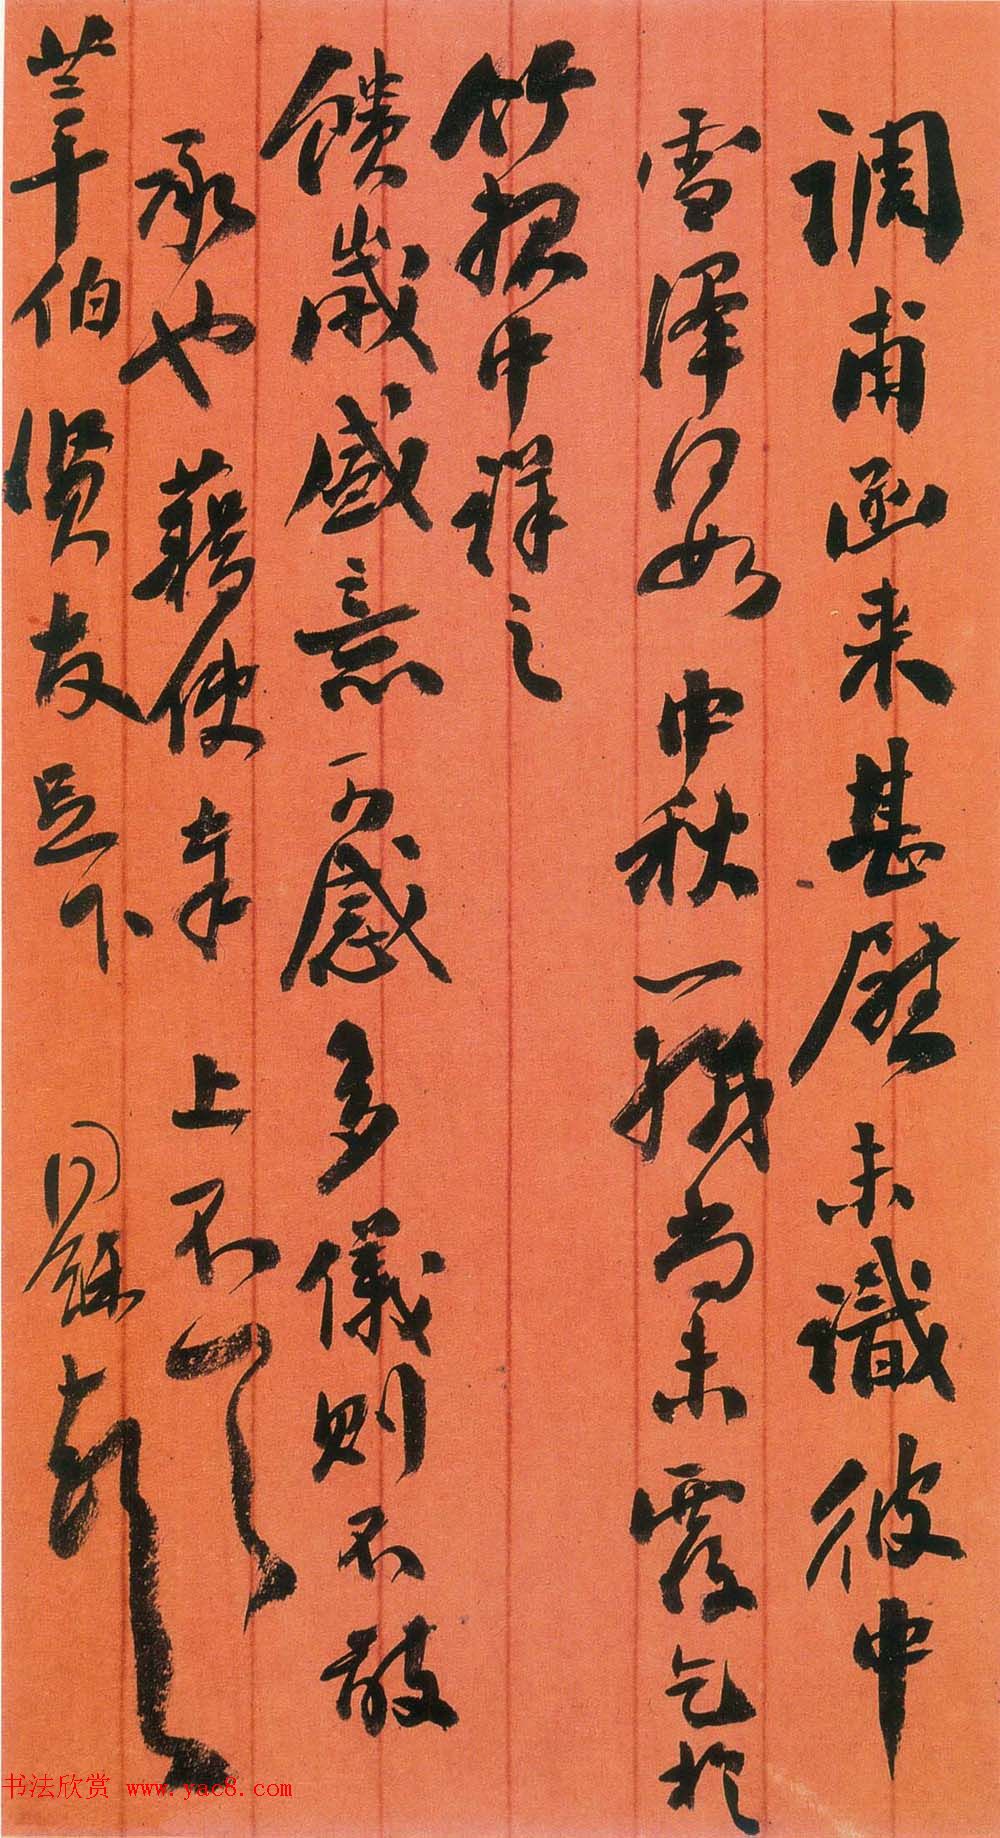 調甫函来甚慰未識彼中
雪澤何如中秋一緘尚未覆乞於
竹报中詳之
饋歲盛意可感多儀則不敢
承也藉使奉上不一一
莘伯贤友足下 同龢頓
书法欣赏 www.yac8.com